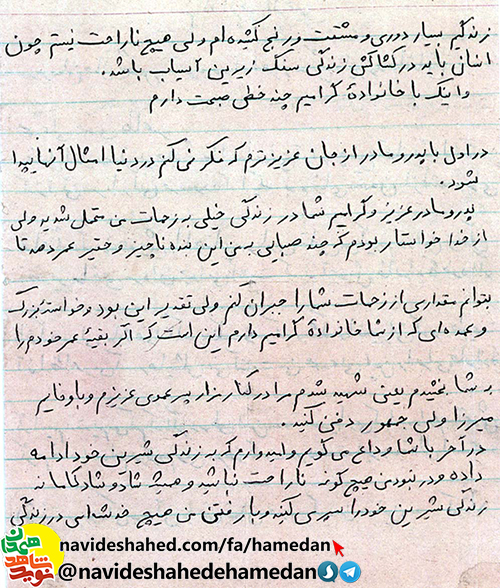 زندگیم بسیار دوری و مشقت و رنج کشیده ام ولی هیچ ناراحت نیستم چون
انسان باید در کشاکش زندگی سنگ زیرین آسیاب باشد.
و اینک با خانوادهٔ گرامیم چند خطی صحبت دارم
در اول با پدر و مادر از جان عزیزترم که فکر نمی کنم در دنیا امثال آنها پیدا
شود.
پدر و مادر عزیز و گرامیم شما در زندگی خیلی به زحمات من متحمل شدید ولی
از خدا خواستار بودم که چند صباحی به من این بنده ناچیز و حقیر عمر دهد تا
بتوانم مقداری از زحمات شما را جبران کنم ولی تقدیر این بود و خواسته بزرگ
و عمده ای که از شما خانوادهٔ گرامیم دارم این است که اگر بقیهٔ عمر خودم را
به شما بخشیدم یعنی شهید شدم مرا در کنار مزار پسر عموی عزیزم و باوفایم
میرزا ولی جمهور دفن کنید.
در آخر با شما وداع می گویم و امیدوارم که به زندگی شیرین خود ادامه
داده و در نبودن من هیچ گونه ناراحت نباشید و همیشه شاد و شادکامانه
زندگی شیرین خود را سپری کنید و با رفتن من هیچ خدشه ای در زندگی
navideshahed.com/fa/hamedan
@navideshahedehamedan
نوید شاهد
همدان